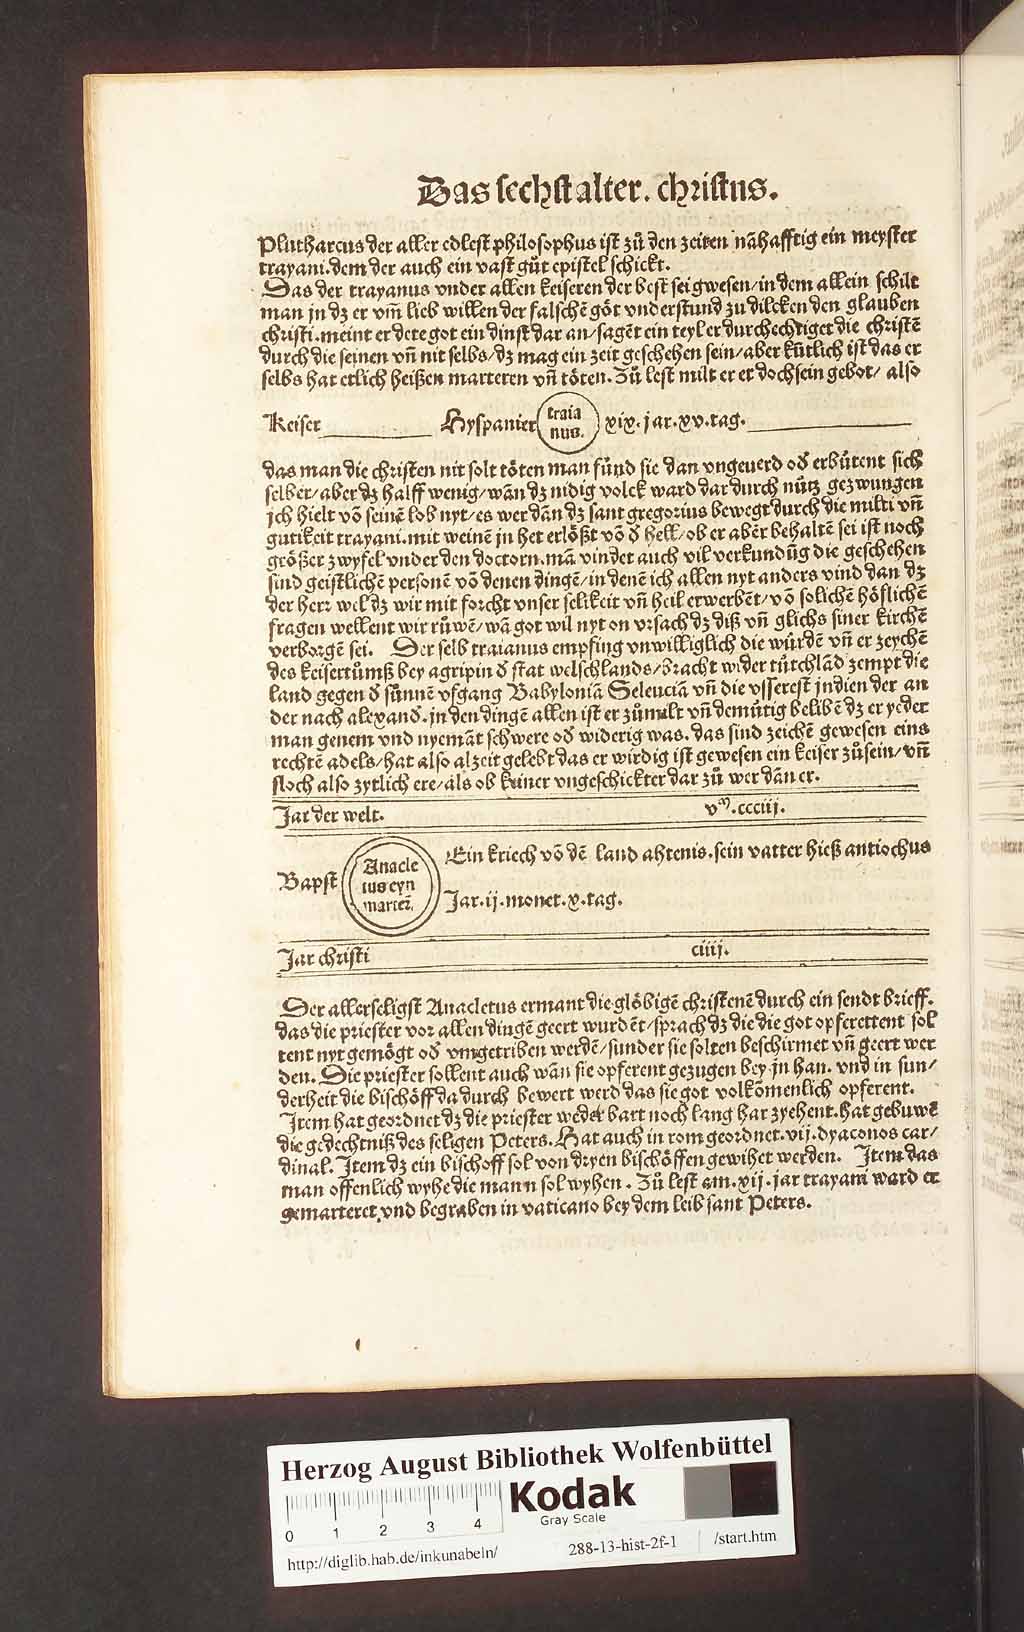 Das sechst alter. christus.
Plutharcus der aller edlest philosophus ist zů den zeiten nāhafftig ein meyster
trayani. dem der auch ein vast gůt epistel schickt.
Das der trayanus vnder allen keiseren der best sei gwesen/ in dem allein schilt
man jn dz er vm̄ lieb willen der falschē göt vnderstund zu dilcken den glauben
christi. meint er dete got ein dinst dar an/ sagēt ein teyl er durchechtiget die christē
durch die seinen vn̄ nit selbs/ dz mag ein zeit geschehen sein/ aber kūtlich ist das er
selbs hat etlich heißen marteren vn̄ töten. Zů lest milt er er doch sein gebot/ also
Keiser Hyspanier traia
nus. xix. jar. xv. tag.
das man die christen nit solt töten man fünd sie dan vngeuerd od erbůtent sich
selber/ aber dz halff wenig/ wān dz nidig volck ward dar durch nůtz gezwungen
jch hielt vō seinē lob nyt/ es wer dān dz sant gregorius bewegt durch die milti vn̄
gutikeit trayani. mit weinē jn het erlößt vō d hell/ ob er aber behaltē sei ist noch
größer zwyfel vnder den doctorn. mā vindet auch vil verkundūg die geschehen
sind geistlichē personē vō denen dingē/ in denē ich allen nyt anders vind dan dz
der herr wel dz wir mit forcht vnser selikeit vn̄ heil erwerbēt/ vō solichē höflichē
fragen wellent wir růwē/ wā got wil nyt on vrsach dz diß vn̄ glichs siner kirchē
verborgē sei. Der selb traianus empfing vnwilliglich die wůrdē vn̄ er zeychē
des keisertůmß bey agripin d stat welschlandes/ bracht wider tůtschlād zempt die
land gegen d sůnnē vfgang Babyloniā Seleuciā vn̄ die vsserest jndien der an
der nach alexand. jn den dingē allen ist er zůmilt vn̄ demůtig belibē dz er yeder
man genem vnd nyemāt schwere od widerig was. das sind zeichē gewesen eins
rechtē adels/ hat also alzeit gelebt das er wirdig ist gewesen ein keiser zůsein/ vn̄
floch also zytlich ere/ als ob keiner vngeschickter dar zů wer dān er.
Jar der welt. vᵐ. ccciij.
Bapst Anacle
tus eyn
marter̄. Ein kriech vō dē land ahtenis. sein vatter hieß antiochus
Jar. ij. monet. x. tag.
Jar christi ciiij.
Der allerseligst Anacletus ermant die glöbigē christenē durch ein sendt brieff.
das die priester vor allen dingē geert wurdēt/ sprach dz die die got opferettent sol
tent nyt gemögt od vmgetriben werdē/ sunder sie solten beschirmet vn̄ geert wer
den. Die priester sollent auch wān sie opferent gezugen bey jn han. vnd in sun/
derheit die bischöff da durch bewert werd das sie got volkōmenlich opferent.
Item hat geordnet dz die priester weder bart noch lang har zyehent. hat gebuwē
die gedechtniß des seligen Peters. Hat auch in rom geordnet. vij. dyaconos car/
dinal. Item dz ein bischoff sol von dryen bischöffen gewihet werden. Item das
man offenlich wyhe die mann sol wyhen. Zů lest am. xij. jar trayani ward er
gemarteret vnd begraben in vaticano bey dem leib sant Peters.
Herzog August Bibliothek Wolfenbüttel
0 1 2 3 4
Kodak
Gray Scale
http://diglib.hab.de/inkunabeln/ 288-13-hist-2f-1 /start.htm